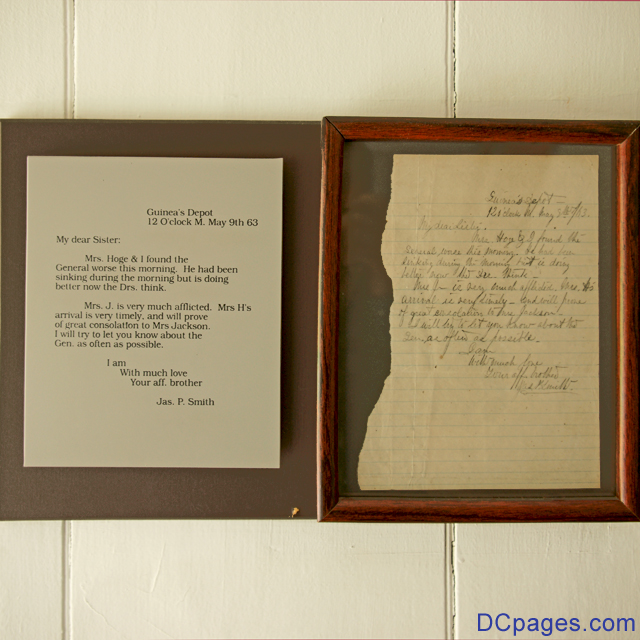 Guinea's Depot
12 O'clock M. May 9th 63
My dear Sister:
Mrs. Hoge & I found the
General worse this morning. He had been
sinking during the morning but is doing
better now the Drs. think.
Mrs. J. is very much afflicted. Mrs H's
arrival is very timely, and will prove
of great consolation to Mrs Jackson.
I will try to let you know about the
Gen. as often as possible.
I am
With much love
Your aff. brother
Jas. P. Smith
Guinea's Depot
12 O'clock M. May 9th /63.
My dear Sister.
Mrs. Hoge & I found the
General worse this morning. He had been
sinking during the morning but is doing
better now the Drs. think
Mrs J. is very much afflicted. Mrs. H's
arrival is very timely and will prove
of great consolation to Mrs Jackson.
I will try to let you know about the
Gen. as often as possible.
I am
With much love
Your aff. brother
Jas. P. Smith
DCpages.com